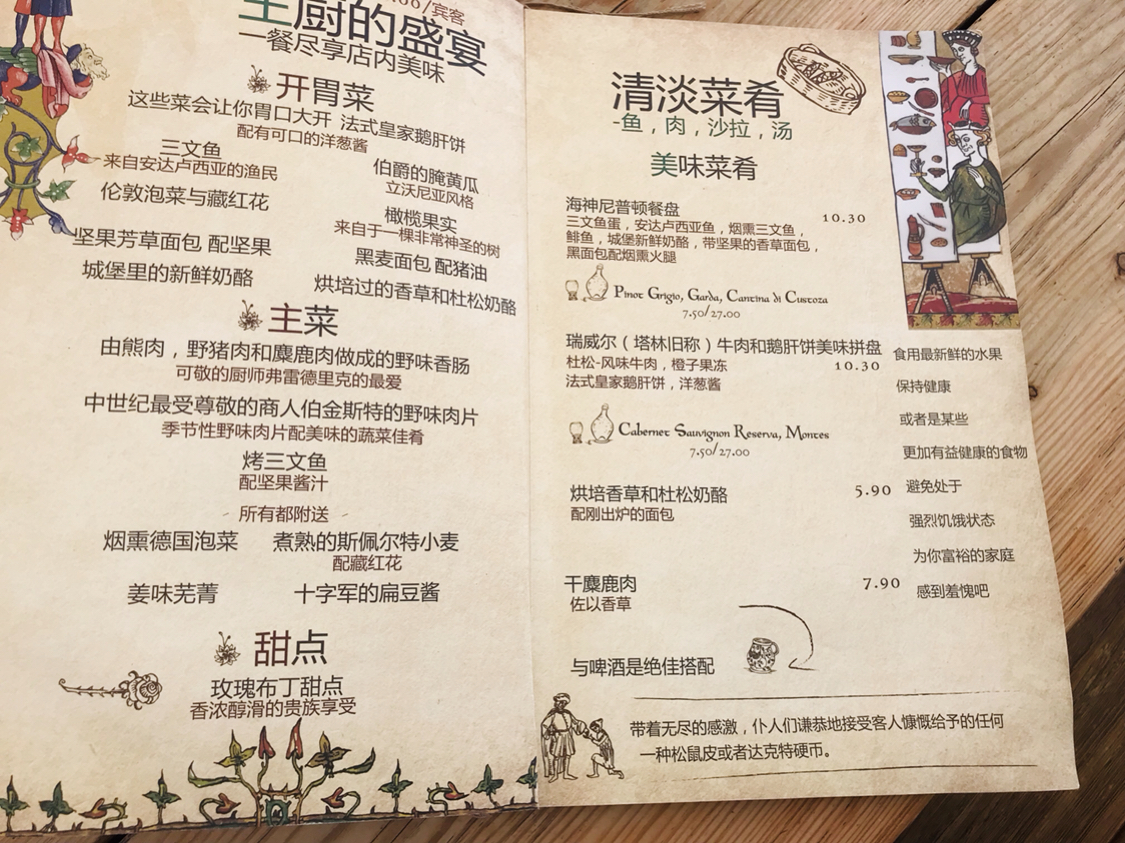 /宾客
主厨的盛宴
一餐尽享店内美味
开胃菜
这些菜会让你胃口大开 法式皇家鹅肝饼
配有可口的洋葱酱
三文鱼
来自安达卢西亚的渔民
伯爵的腌黄瓜
立沃尼亚风格
伦敦泡菜与藏红花
橄榄果实
来自于一棵非常神圣的树
坚果芳草面包 配坚果
黑麦面包 配猪油
城堡里的新鲜奶酪
烘培过的香草和杜松奶酪
主菜
由熊肉，野猪肉和麋鹿肉做成的野味香肠
可敬的厨师弗雷德里克的最爱
中世纪最受尊敬的商人伯金斯特的野味肉片
季节性野味肉片配美味的蔬菜佳肴
烤三文鱼
配坚果酱汁
所有都附送
烟熏德国泡菜 煮熟的斯佩尔特小麦
配藏红花
姜味芜菁 十字军的扁豆酱
甜点
玫瑰布丁甜点
香浓醇滑的贵族享受
清淡菜肴
-鱼，肉，沙拉，汤
美味菜肴
海神尼普顿餐盘 10.30
三文鱼蛋，安达卢西亚鱼，烟熏三文鱼，
鲱鱼，城堡新鲜奶酪，带坚果的香草面包，
黑面包配烟熏火腿
Pinot Grigio, Garda, Cantina di Custoza
7.50/27.00
瑞威尔（塔林旧称）牛肉和鹅肝饼美味拼盘
杜松-风味牛肉，橙子果冻 10.30
法式皇家鹅肝饼，洋葱酱
Cabernet Sauvignon Reserva, Montes
7.50/27.00
烘培香草和杜松奶酪 5.90
配刚出炉的面包
干麋鹿肉 7.90
佐以香草
与啤酒是绝佳搭配
食用最新鲜的水果
保持健康
或者是某些
更加有益健康的食物
避免处于
强烈饥饿状态
为你富裕的家庭
感到羞愧吧
带着无尽的感激，仆人们谦恭地接受客人慷慨给予的任何
一种松鼠皮或者达克特硬币。